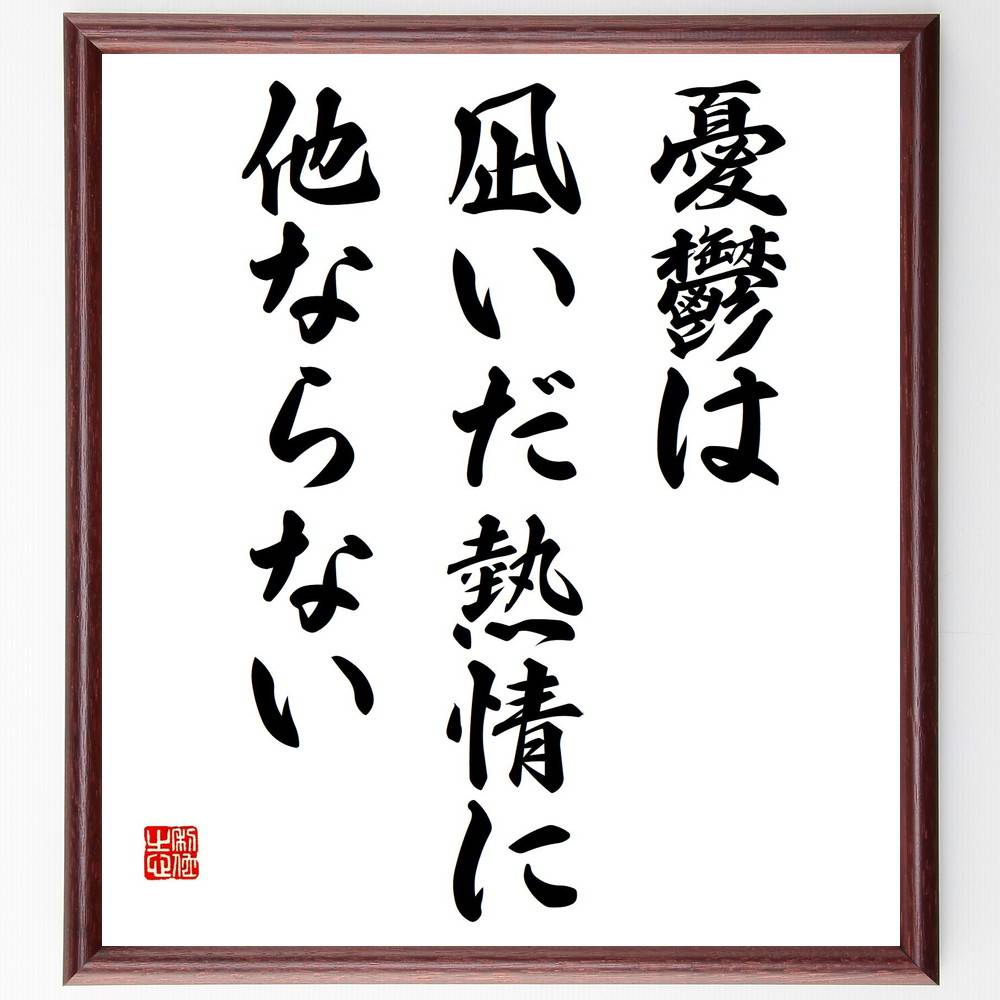 憂鬱は
凪いだ熱情に
他ならない